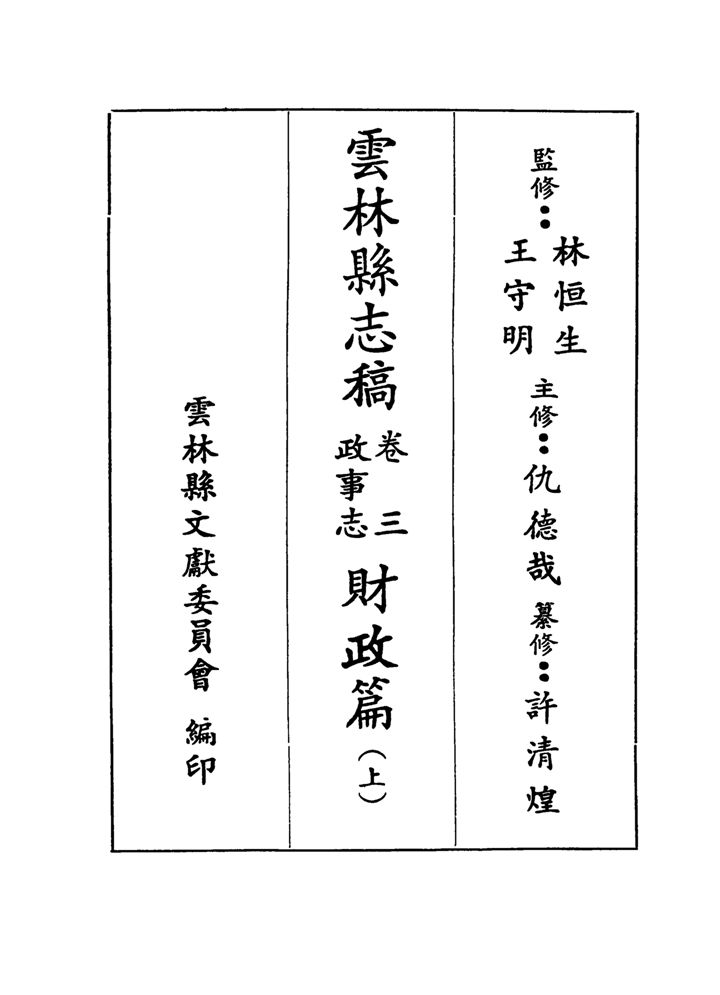 監修：林恒生
王守明
主修：仇德哉 纂修：許清煌
雲林縣志稿 卷三
政事志
財政篇（上）
雲林縣文獻委員會 編印